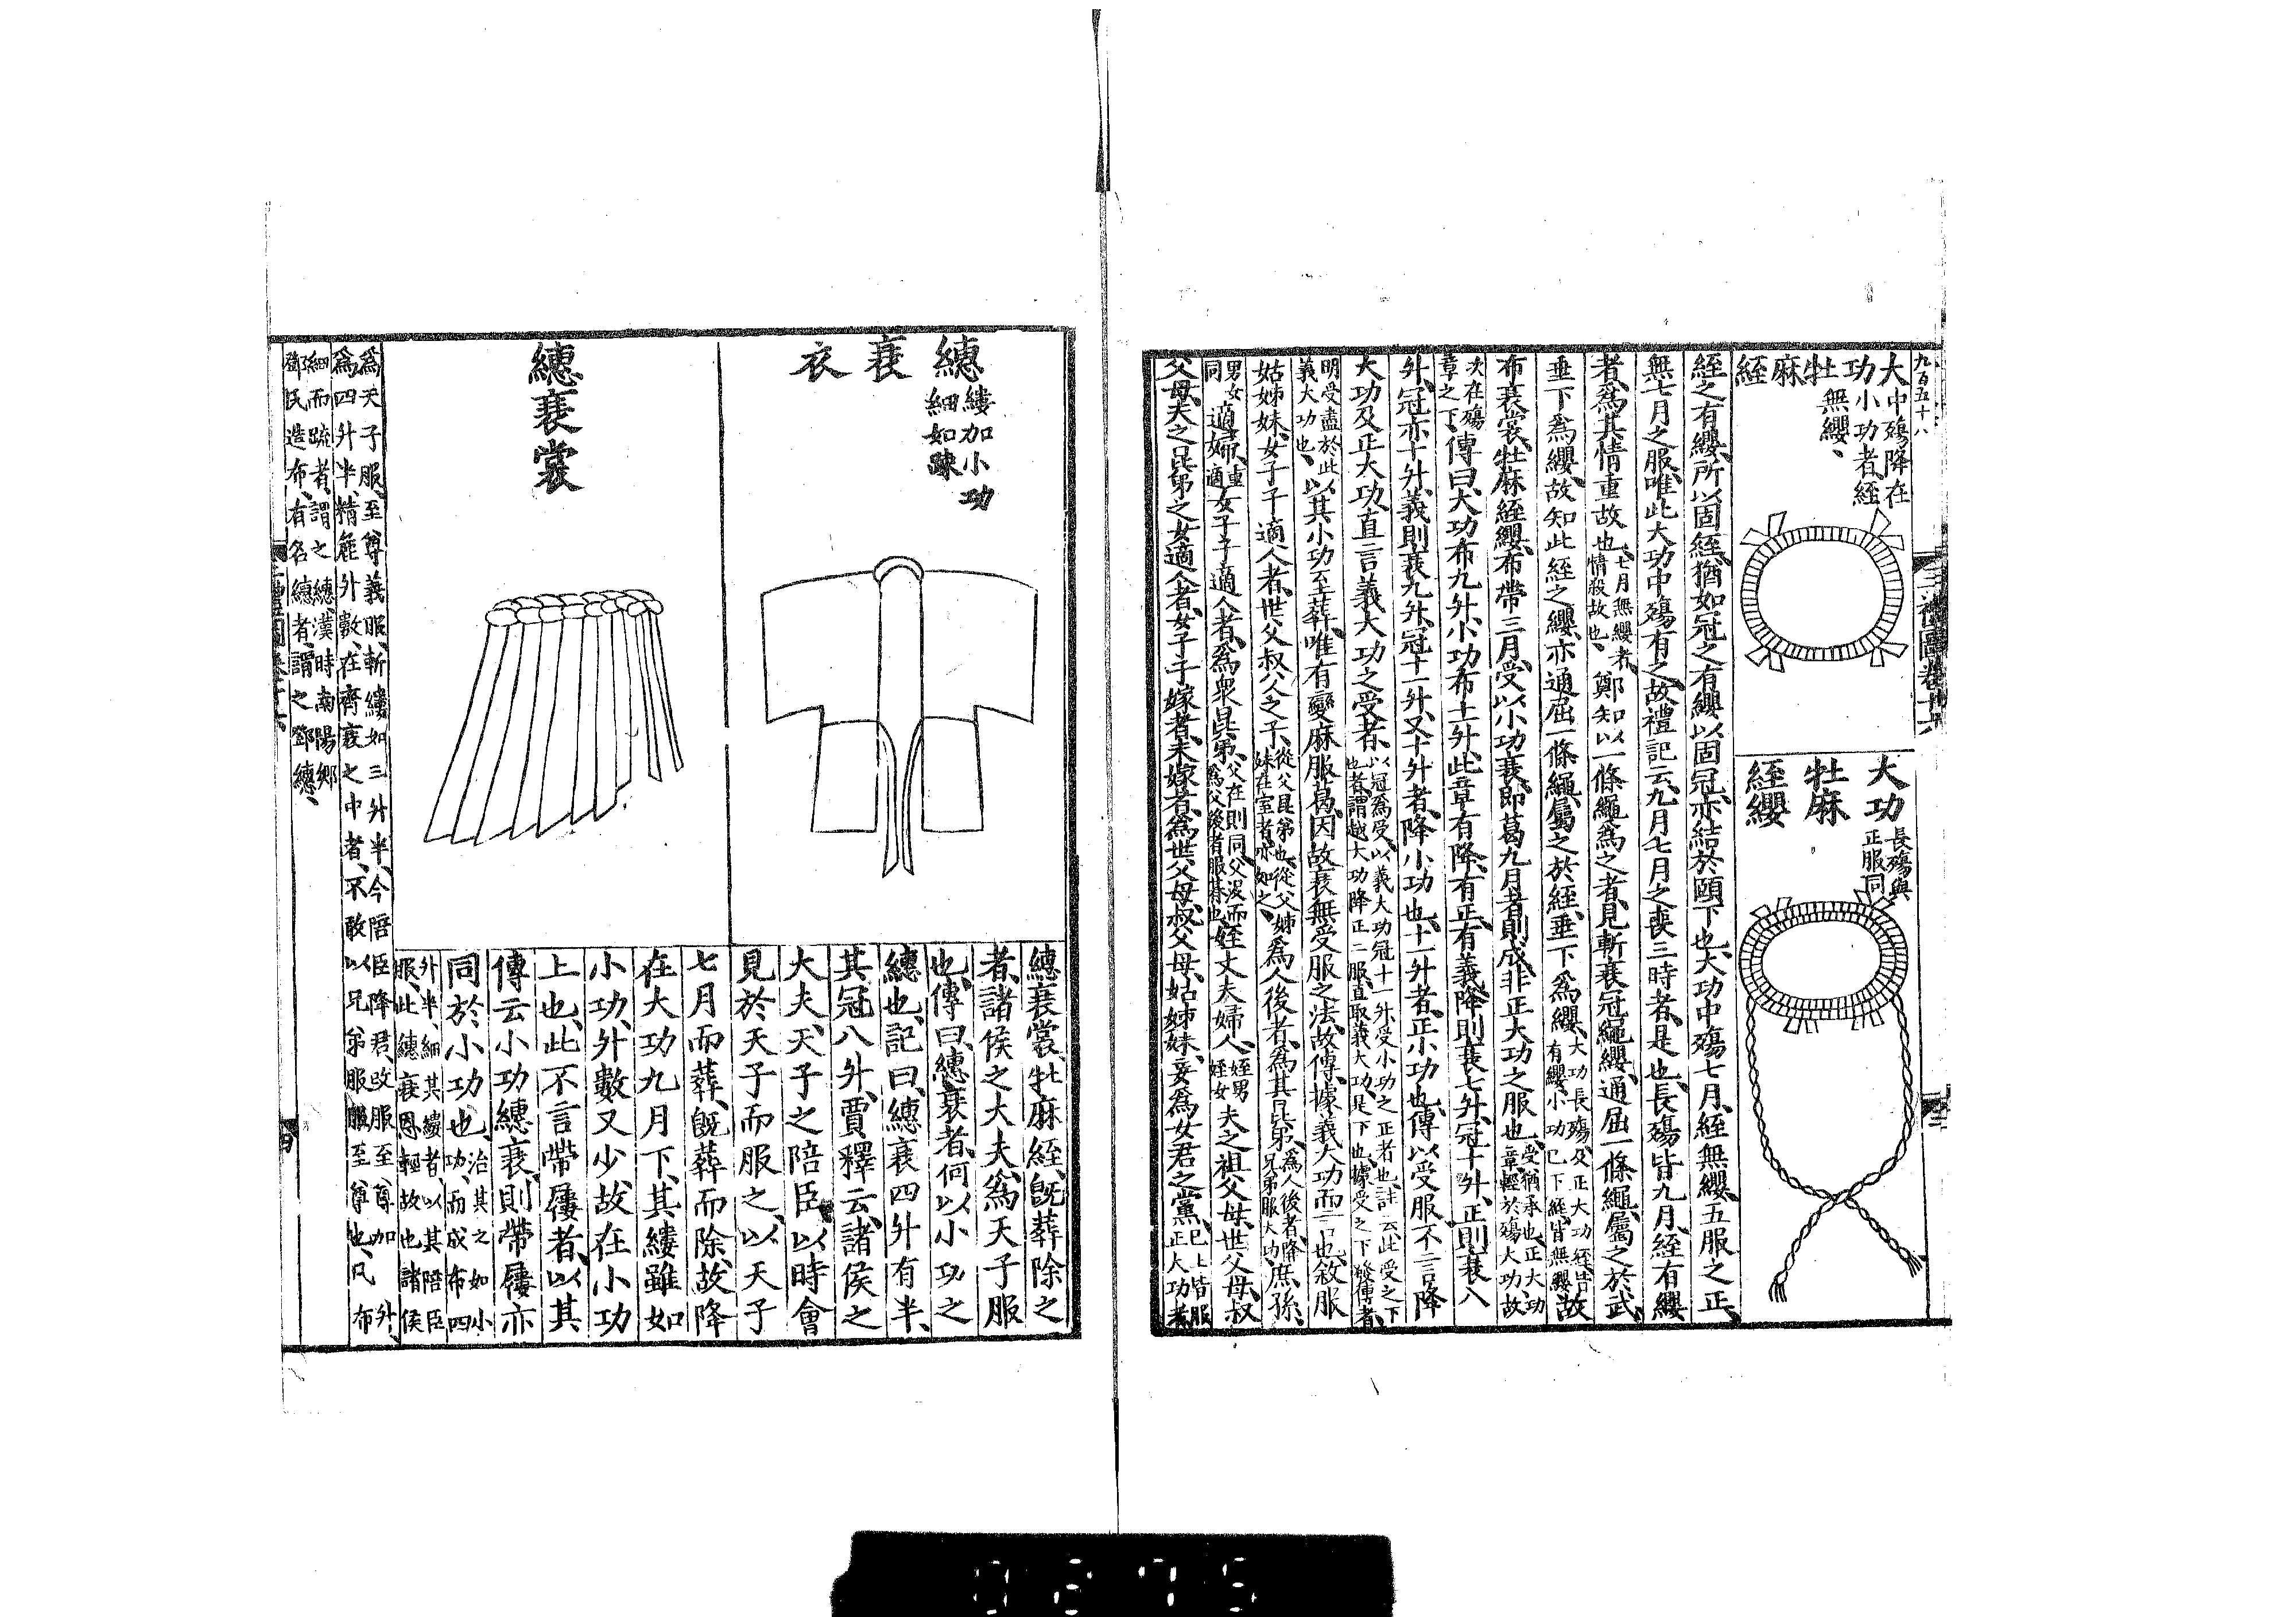 九百五十八
三禮圖卷十六
大中殤降在
功小功者絰
牡無纓
麻
絰
大功長殤與
正服同
牡麻
絰纓
絰之有纓所以固絰猶如冠之有纓以固冠亦結於頤下也大功中殤七月絰無纓五服之正
無七月之服唯此大功中殤有之故禮記云九月七月之喪三時者是也長殤皆九月絰有纓
者爲其情重故也七月無纓者情殺故也鄭知以一條繩爲之者見斬衰冠繩纓通屈一條繩屬之於武
垂下爲纓故知此絰之纓亦通屈一條繩屬之於絰垂下爲纓大功長殤及正大功絰皆有纓小功已下絰皆無纓故
布衰裳牡麻絰纓布帶三月受以小功衰即葛九月者則成非正大功之服也受猶承也正大功章輕於殤大功故
次在殤章之下傳曰大功布九升小功布十一升此章有降有正有義降則衰七升冠十升正則衰八
升冠亦十升義則衰九升冠十一升又十升者降小功也十一升者正小功也傳以受服不言降
大功及正大功直言義大功之受者以冠爲受以義大功冠十一升受小功之正者也註云此受之下也者謂越大功降正二服直取義大功是下也據受之下發傳者
明受盡於此義大功也以其小功至葬唯有變麻服葛因故衰無受服之法故傳據義大功而言也敘服
姑姊妹女子子適人者世父叔父之子從父昆弟也從父姊妹在室者亦如之爲人後者爲其昆弟爲人後者降兄弟服大功庶孫
男女同適婦重適女子子適人者爲衆昆弟父在則同父沒而爲父後者服朞也姪丈夫婦人姪男姪女夫之祖父母世父母叔
父母夫之昆弟之女適人者女子子嫁者未嫁者爲世父母叔父母姑姊妹妾爲女君之黨已上皆服正大功者
繐衰衣
縷加小功
細如疎
繐衰裳
繐衰裳牡麻絰旣葬除之
者諸侯之大夫爲天子服
也傳曰繐衰者何以小功之
繐也記曰繐衰四升有半
其冠八升賈釋云諸侯之
大夫天子之陪臣以時會
見於天子而服之以天子
七月而葬旣葬而除故降
在大功九月下其縷雖如
小功升數又少故在小功
上也此不言帶屨者以其
傳云小功繐衰則帶屨亦
同於小功也治其之如小功而成布四
升半細其縷者以其陪臣服此繐衰恩輕故也諸侯
爲天子服至尊義服斬縷如三升半今陪臣降君改服至尊加升
爲四升半精麁升數在齊衰之中者不敢以兄弟服服至尊也凡布
細而疏者謂之繐漢時南陽鄉
鄧氏造布有名繐者謂之鄧繐